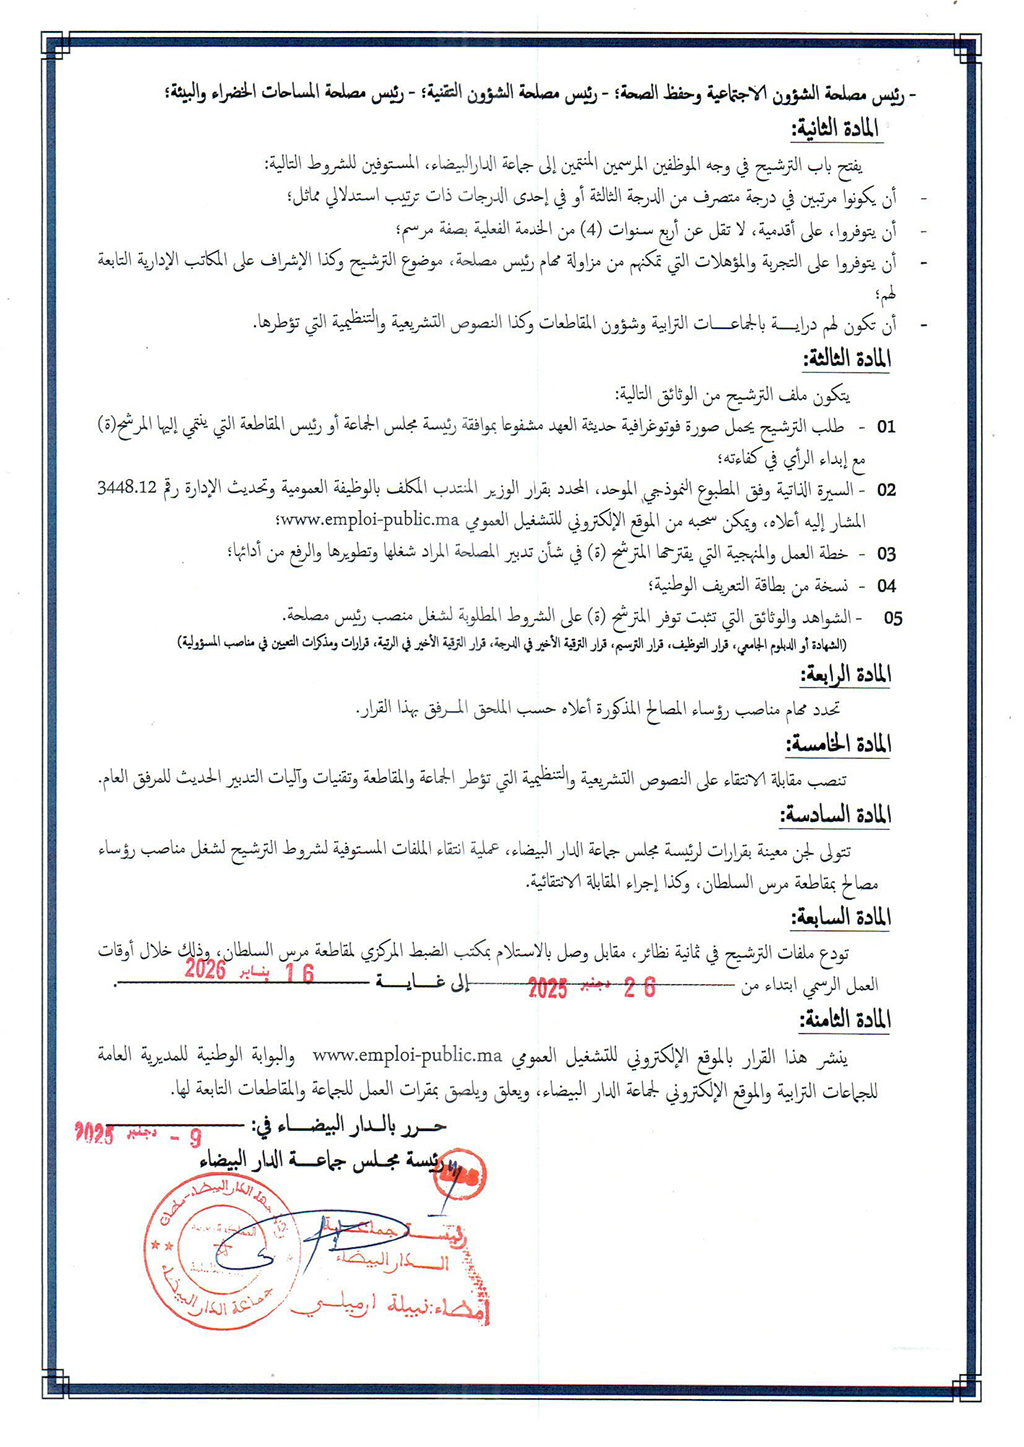 - رئيس مصلحة الشؤون الاجتماعية وحفظ الصحة؛ - رئيس مصلحة الشؤون التقنية؛ - رئيس مصلحة المساحات الخضراء والبيئة؛
المادة الثانية:
يفتح باب الترشيح في وجه الموظفين المرسمين المنتمين إلى جماعة الدارالبيضاء، المستوفين للشروط التالية:
- أن يكونوا مرتبين في درجة متصرف من الدرجة الثالثة أو في إحدى الدرجات ذات ترتيب استدلالي مماثل؛
- أن يتوفروا، على أقدمية، لا تقل عن أربع سنوات (4) من الخدمة الفعلية بصفة مرسم؛
- أن يتوفروا على التجربة والمؤهلات التي تمكنهم من مزاولة مهام رئيس مصلحة، موضوع الترشيح وكذا الإشراف على المكاتب الإدارية التابعة
لهم؛
- أن تكون لهم درايـــة بالجماعـــات الترابية وشؤون المقاطعات وكذا النصوص التشريعية والتنظيمية التي تؤطرها.
المادة الثالثة:
يتكون ملف الترشيح من الوثائق التالية:
01 - طلب الترشيح يحمل صورة فوتوغرافية حديثة العهد مشفوعا بموافقة رئيسة مجلس الجماعة أو رئيس المقاطعة التي ينتمي إليها المرشح(ة)
مع إبداء الرأي في كفاءته؛
02 - السيرة الذاتية وفق المطبوع النموذجي الموحد، المحدد بقرار الوزير المنتدب المكلف بالوظيفة العمومية وتحديث الإدارة رقم 3448.12
المشار إليه أعلاه، ويمكن سحبه من الموقع الإلكتروني للتشغيل العمومي www.emploi-public.ma؛
03 - خطة العمل والمنهجية التي يقترحها المترشح (ة) في شأن تدبير المصلحة المراد شغلها وتطويرها والرفع من أدائها؛
04 - نسخة من بطاقة التعريف الوطنية؛
05 - الشواهد والوثائق التي تثبت توفر المترشح (ة) على الشروط المطلوبة لشغل منصب رئيس مصلحة.
(الشهادة أو الدبلوم الجامعي، قرار التوظيف، قرار الترسيم، قرار الترقية الأخير في الدرجة، قرار الترقية الأخير في الرتبة، قرارات ومذكرات التعيين في مناصب المسؤولية)
المادة الرابعة:
تحدد مهام مناصب رؤساء المصالح المذكورة أعلاه حسب الملحق المـرفق بهذا القرار.
المادة الخامسة:
تنصب مقابلة الانتقاء على النصوص التشريعية والتنظيمية التي تؤطر الجماعة والمقاطعة وتقنيات وآليات التدبير الحديث للمرفق العام.
المادة السادسة:
تتولى لجن معينة بقرارات لرئيسة مجلس جماعة الدار البيضاء، عملية انتقاء الملفات المستوفية لشروط الترشيح لشغل مناصب رؤساء
مصالح بمقاطعة مرس السلطان، وكذا إجراء المقابلة الانتقائية.
المادة السابعة:
تودع ملفات الترشيح في ثمانية نظائر، مقابل وصل بالاستلام بمكتب الضبط المركزي لمقاطعة مرس السلطان، وذلك خلال أوقات
العمل الرسمي ابتداء من 26 دجنبر 2025 إلى غـايـــة 16 يناير 2026.
المادة الثامنة:
ينشر هذا القرار بالموقع الإلكتروني للتشغيل العمومي www.emploi-public.ma والبوابة الوطنية للمديرية العامة
للجماعات الترابية والموقع الإلكتروني لجماعة الدار البيضاء، ويعلق ويلصق بمقرات العمل للجماعة والمقاطعات التابعة لها.
حـــرر بالـدار البيضـــاء في: 9 - دجنبر 2025
رئيسة مجلس جماعـــة الدار البيضاء
رئيسة جماعـــة
الـــدار البيضاء
إمضاء: نبيلة ارميلـــي
جماعة الدار البيضاء